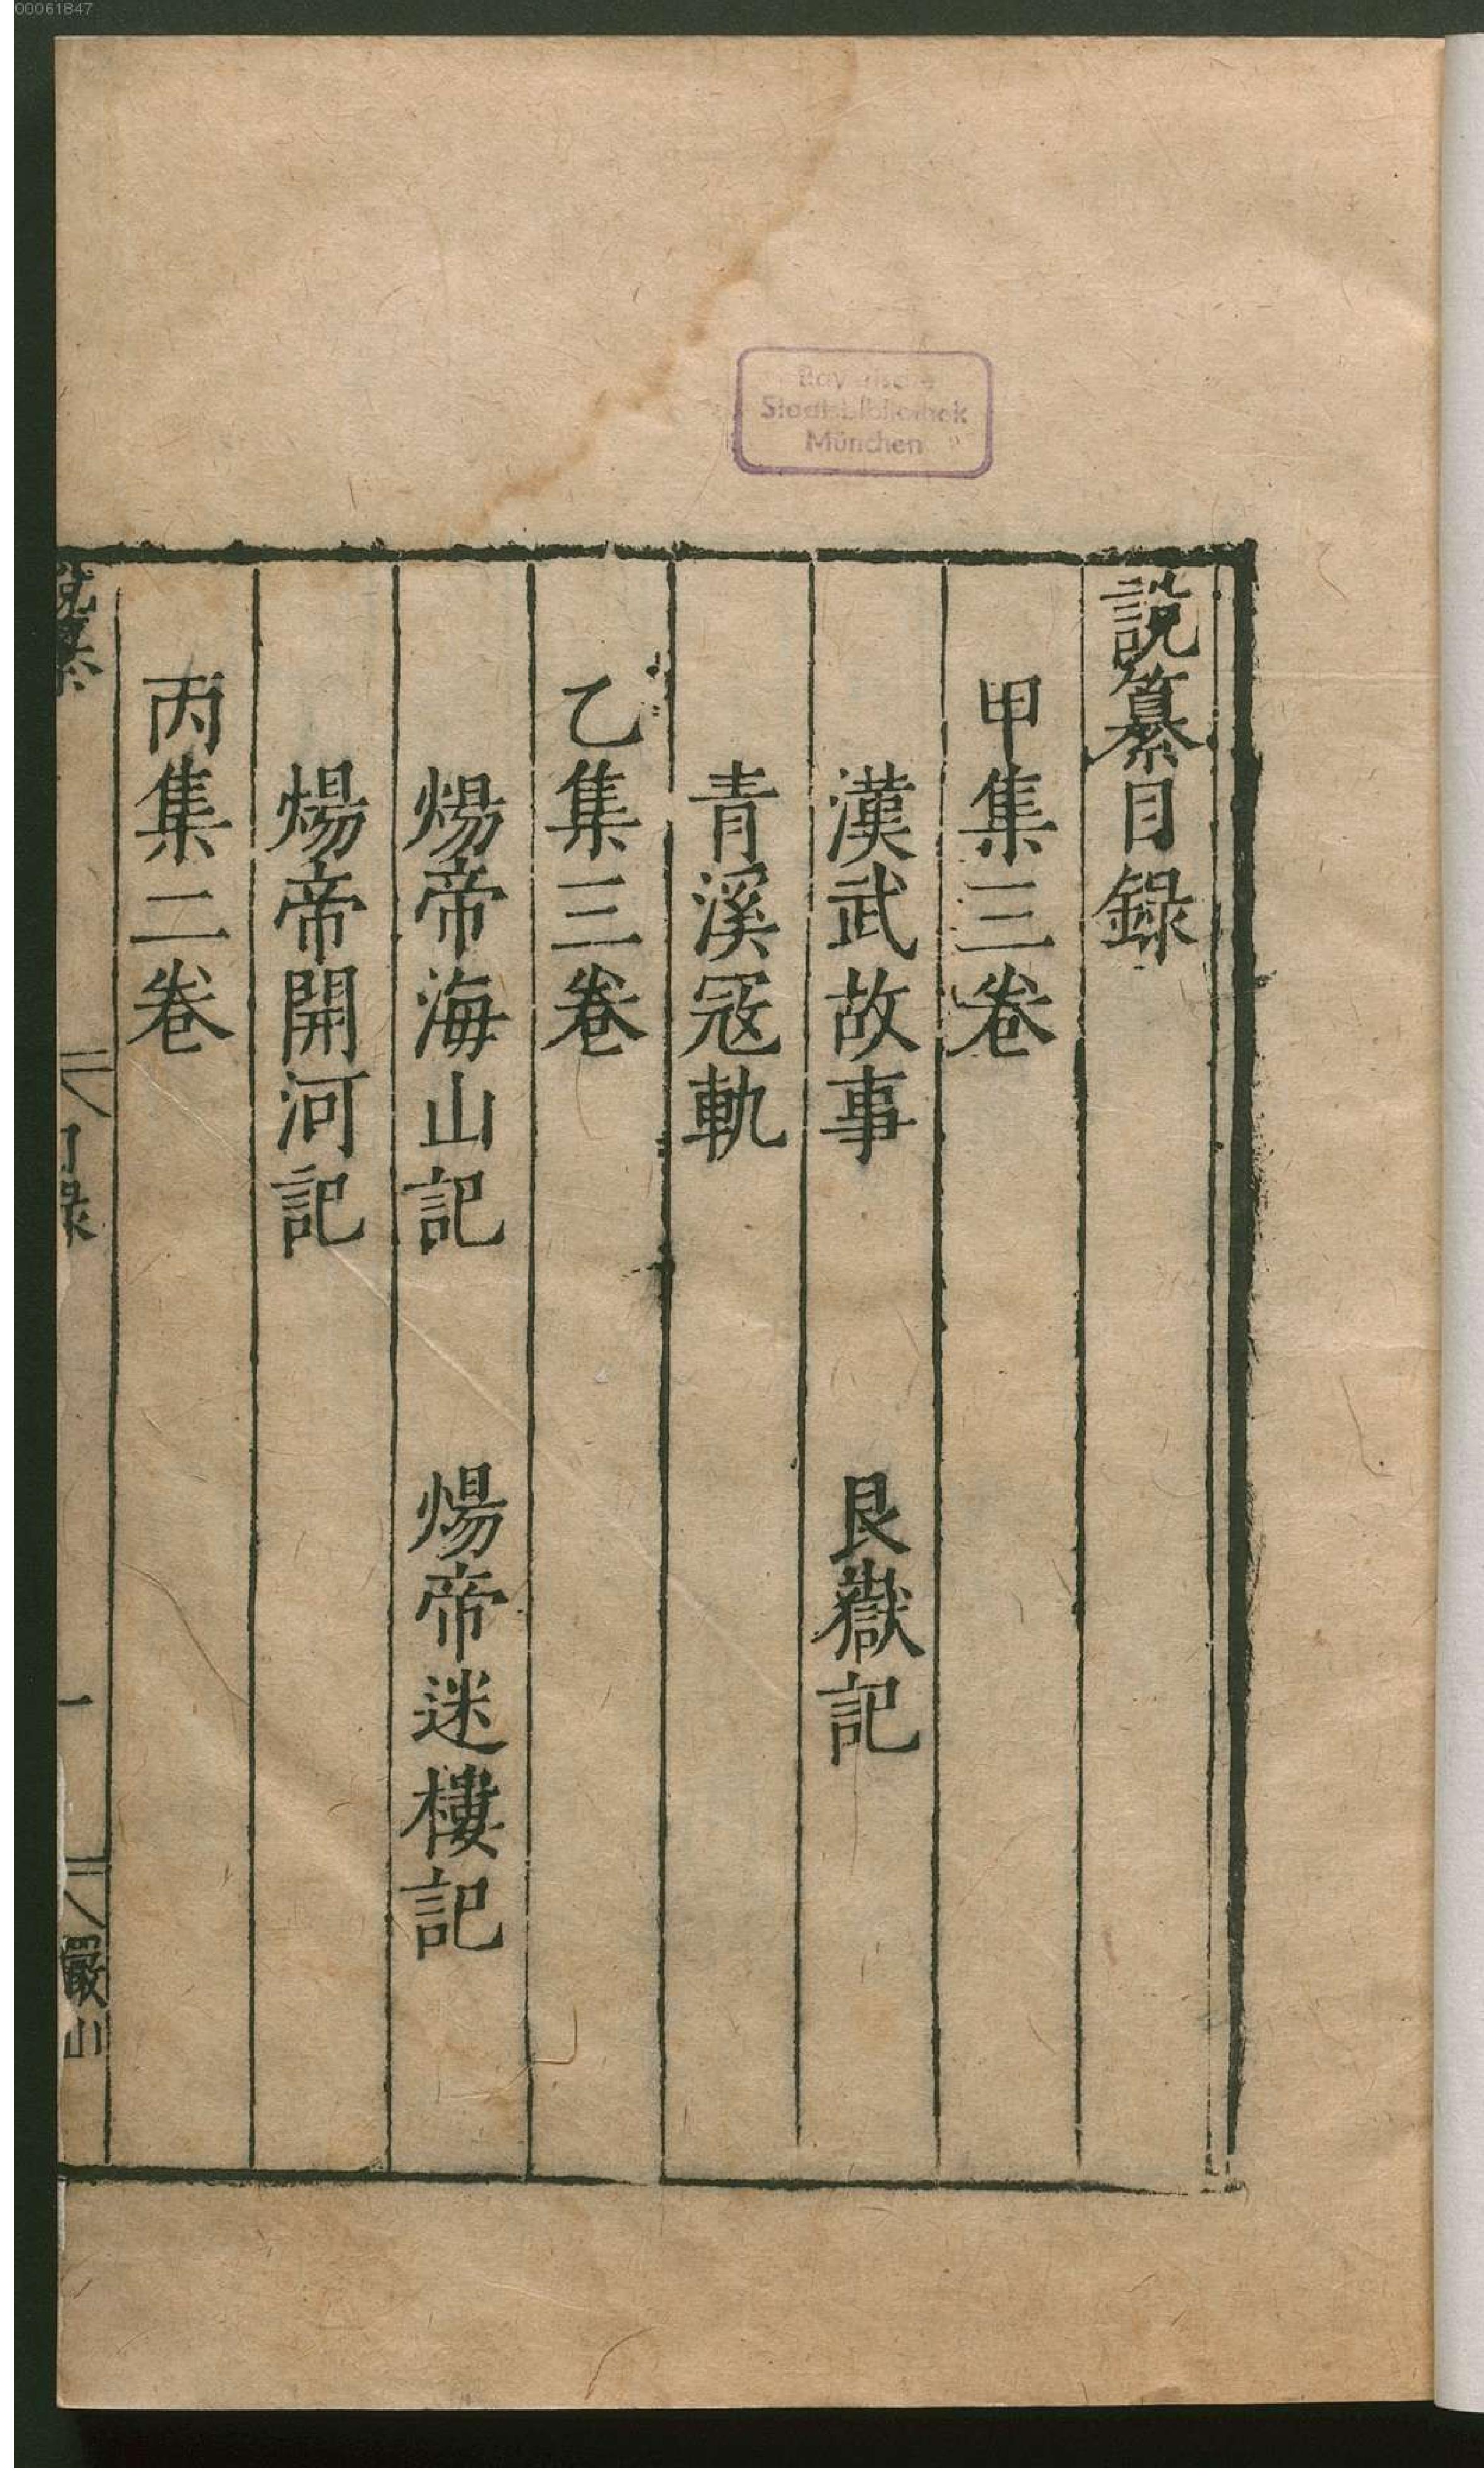 00061847
Bayerische
Staatsbibliothek
München
說纂目錄
甲集三卷
漢武故事 艮嶽記
青溪宼軌
乙集三卷
煬帝海山記 煬帝迷樓記
煬帝開河記
丙集二卷
說纂 目錄 一 儼山